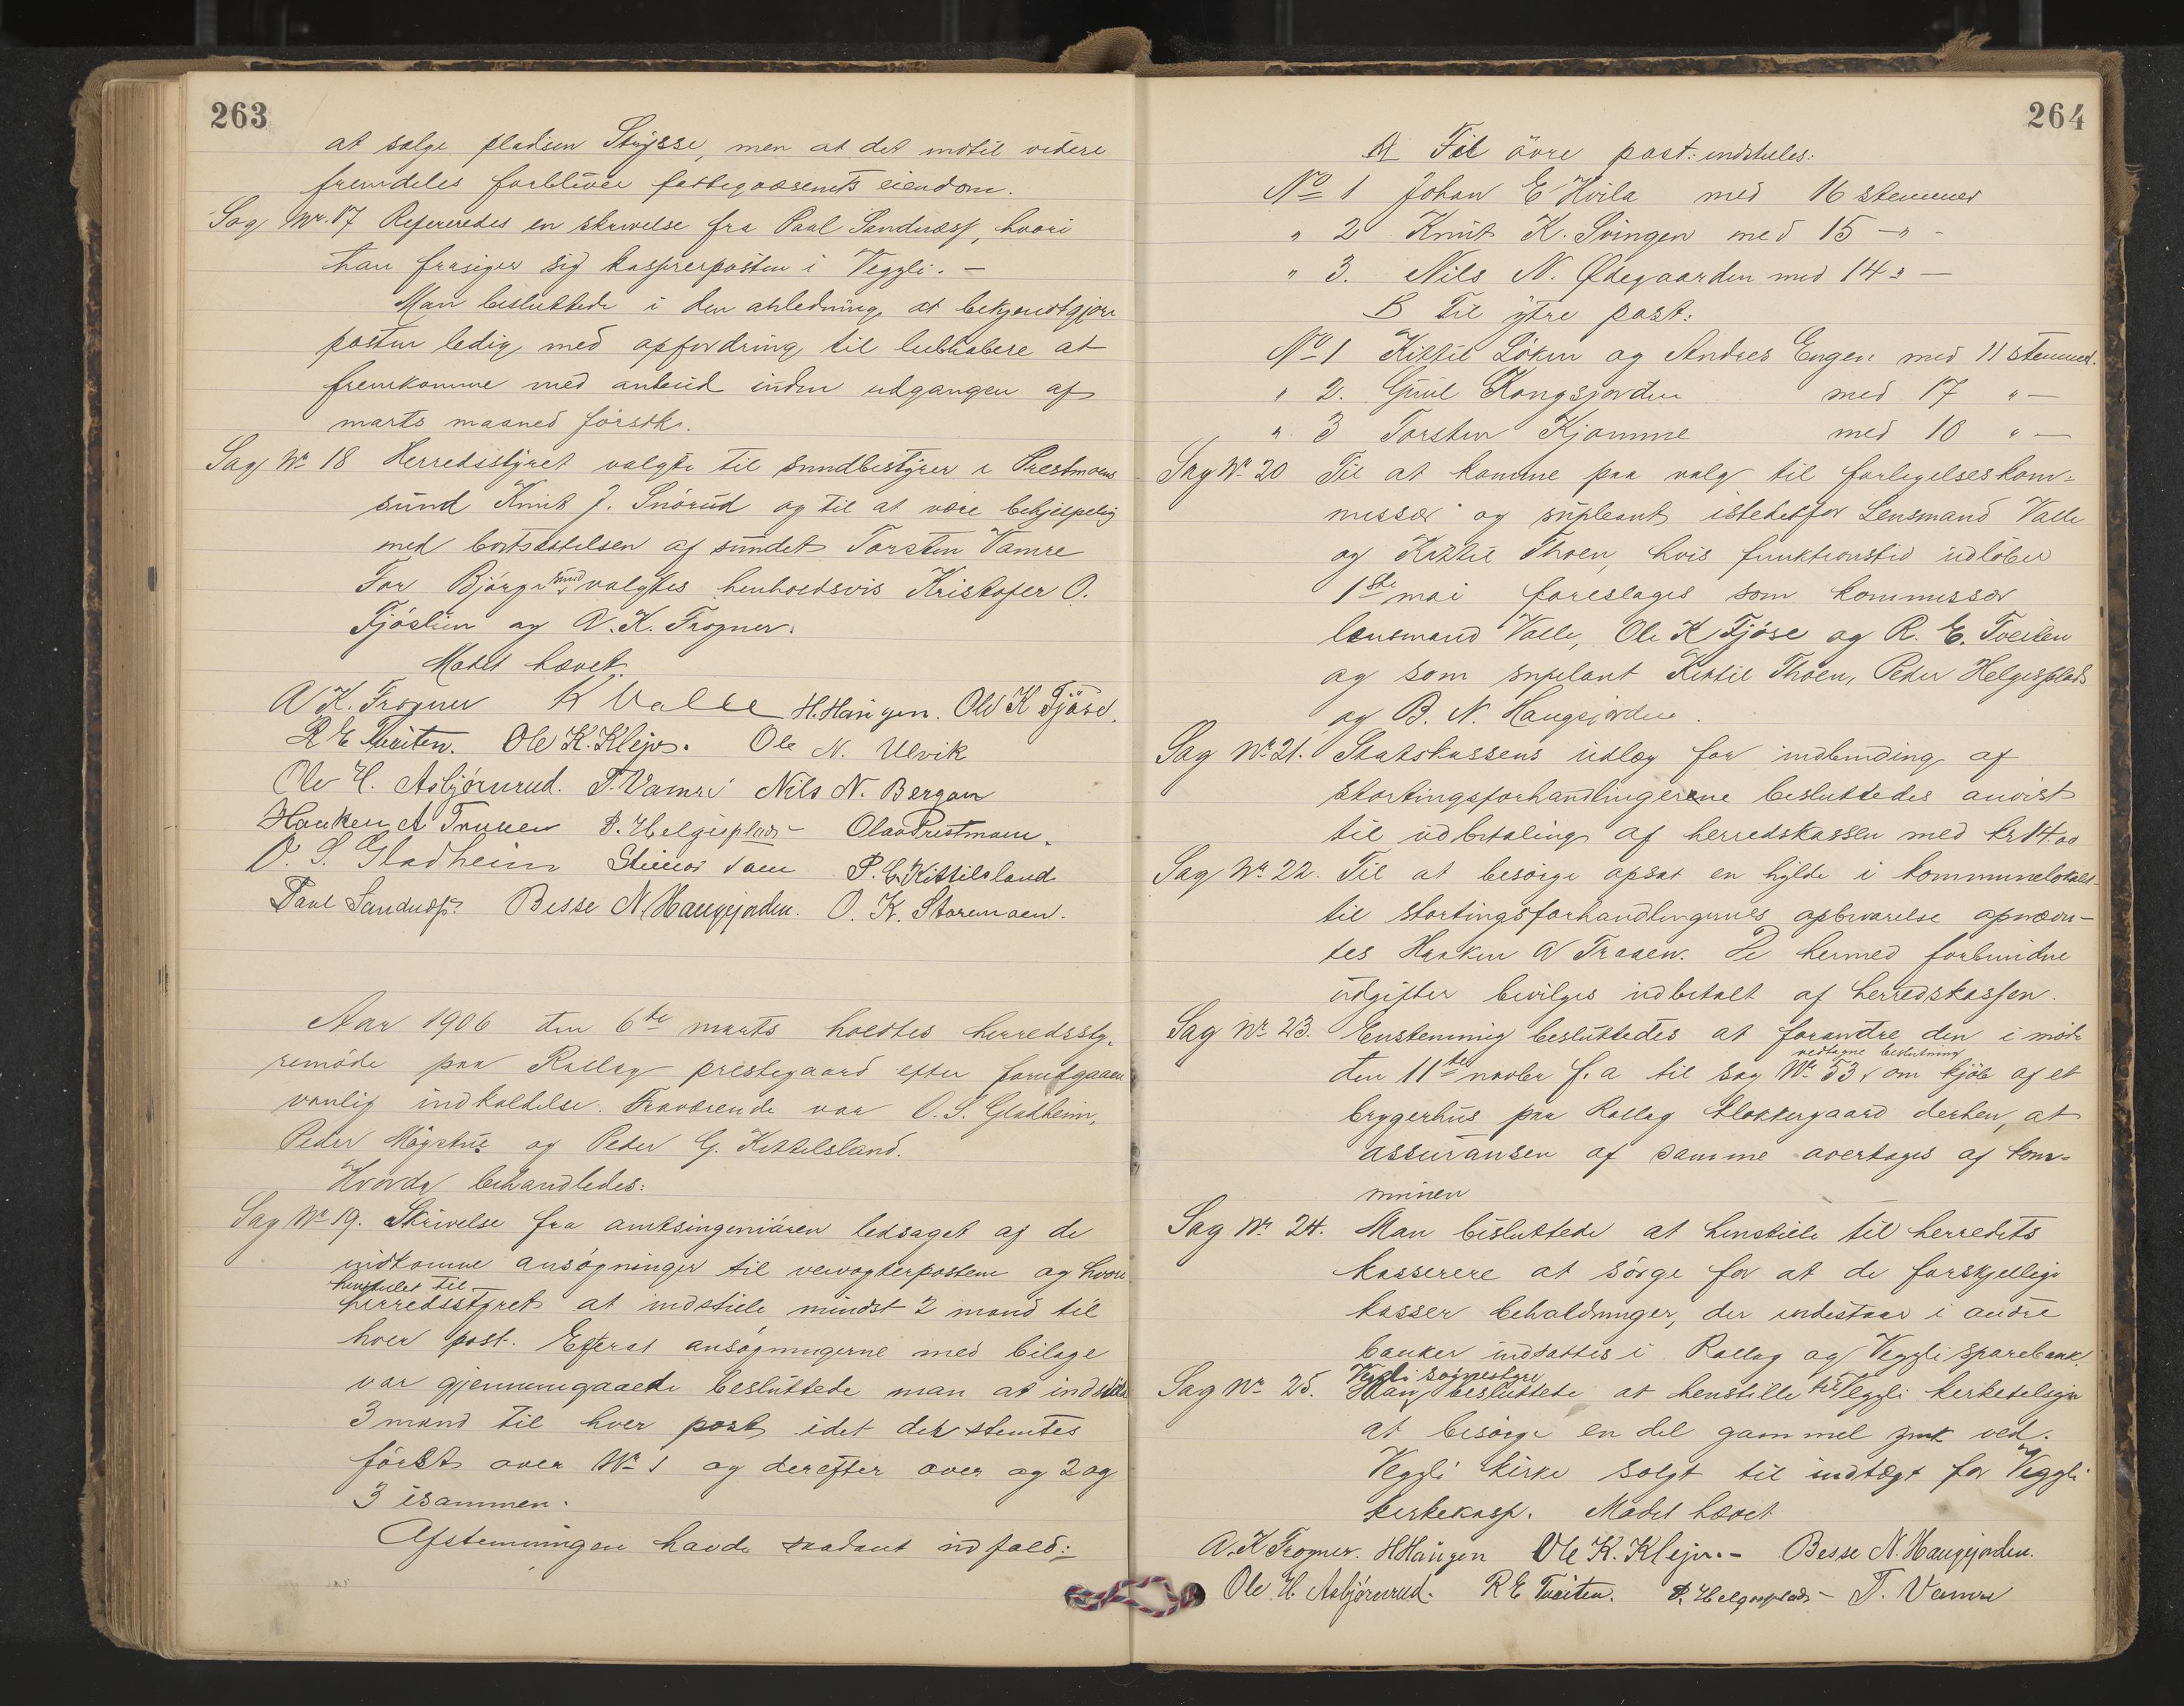 263
at sælge pladsen Strysse, men at det indtil videre
fremdeles forbliver fattigvæsenets eiendom.
Sag Nr. 17 Refereredes en skrivelse fra Paul Sandnæss, hvori
han frasiger sig kassrerposten i Veggli. —
Man besluttede i den anledning, at bekjendtgjøre
posten ledig med opfordring til lubhabere at
fremkomme med anbud inden udgangen af
marts maaned førstk.
Sag Nr 18 Herredsstyret valgte til sundbestyrer i Prestmoens
sund Knut J. Snørud og til at være behjelpelig
med bortsættelsen af sundet Torsten Vamre
For Bjørge sund valgtes henholdsvis Kristofer O.
Fjøslien og A. K. Frogner.
Mødet hævet.
A K. Frogner K Valle H. Haugen. Ole K Fjøse.
R E Tveiten. Ole K. Klejvs. Ole N. Ulvik
Ole H. Asbjørnrud. T. Vamre Nils N. Bergan
Haaken A Traaen P. Helgesplads — Olav Prestmoen.
O. S. Gladheim P. G. Kittilsland
Paul Sandnæss. Besse N. Haugejorden. O. K. Storemoen.
Aar 1906 den 6te marts holdtes herredssty-
remøde paa Rollag prestegaard efter forudgaaen
vanlig indkaldelse. Fraværende var O. S. Gladheim,
Peder og Peder G. Kittilsland.
Hvorda behandledes:
Sag Nr 19. Skrivelse fra amtsingeniøren ledsaget af de
indkomne ansøgninger til veivogterpostene og hvori
henstillet til
herredsstyret at indstille mindst 2 mand til
hver post. Efterat ansøgningerne med bilage
var gjennemgaaede besluttede man at indstille
3 mand til hver post idet der stemtes
først over Nr 1 og derefter over og 2 og
3 isammen.
Afstemningen havde saadant udfald:
264
A Til øvre post: indstilles:
No 1 Johan E Hvila med 16 stemmer
" 2 Knut K. Svingen med 15 — " -
" 3. Nils N. Ødegaarden med 14 " —
B Til ytre post:
No 1 Kittil Løken og Andres Engen med 11 stemmer.
" 2. Guul Kongsjorden med 17 " —
" 3 Torsten Kjomme med 10 " —
Sag Nr 20 Til at komme paa valg til forligelseskom-
missær og supleant istedetfor Lensmand Valle
og Kittil Thoen, hvis funktionstid udløber
1ste mai foreslages som kommissær
lensmand Valle, Ole K Fjøse og R. E. Tveiten
og som suplant Kittil Thoen, Peder Helgesplads
og B. N. Haugejorden.
Sag Nr 21. Statskassens udlæg for indbinding af
stortingsforhandlingerene besluttedes anvist
til udbetaling af herredskassen med kr 14.00
Sag Nr 22. Til at besørge opsat en hylde i kommunelokalet
til stortingsforhandlingernes opbevarelse opnævn-
tes Haaken A Traaen. De hermed forbundne
udgifter bevilges udbetalt af herredskassen.
Sag Nr 23. Enstemmig besluttedes at forandre den i møde
vedtagne beslutning
den 11te novbr f. a til sag Nr 53 om kjøb af et
bryggerhus paa Rollag klokkergaard derhen, at
assuransen af samme overtages af kom-
munen
Sag Nr 24. Man besluttede at henstille til herredets
kasserere at sørge for at de forskjellige
kasser beholdninger, der indestaar i andre
banker indsættes i Rollag og Veggli sparebank.
Vegli sognestyre
Sag Nr 25. Man besluttede at henstille til Veggli kirketilsyn
at besørge en del gammel zink ved
Veggli kirke solgt til indtægt for Veggli
kirkekasse. Mødet hævet
A. K Frogner. H Haugen Ole K. Klejvs. — Besse N. Haugejorden.
Ole H. Asbjørnrud. R E Tveiten. P. Helgesplads — T. Vamre